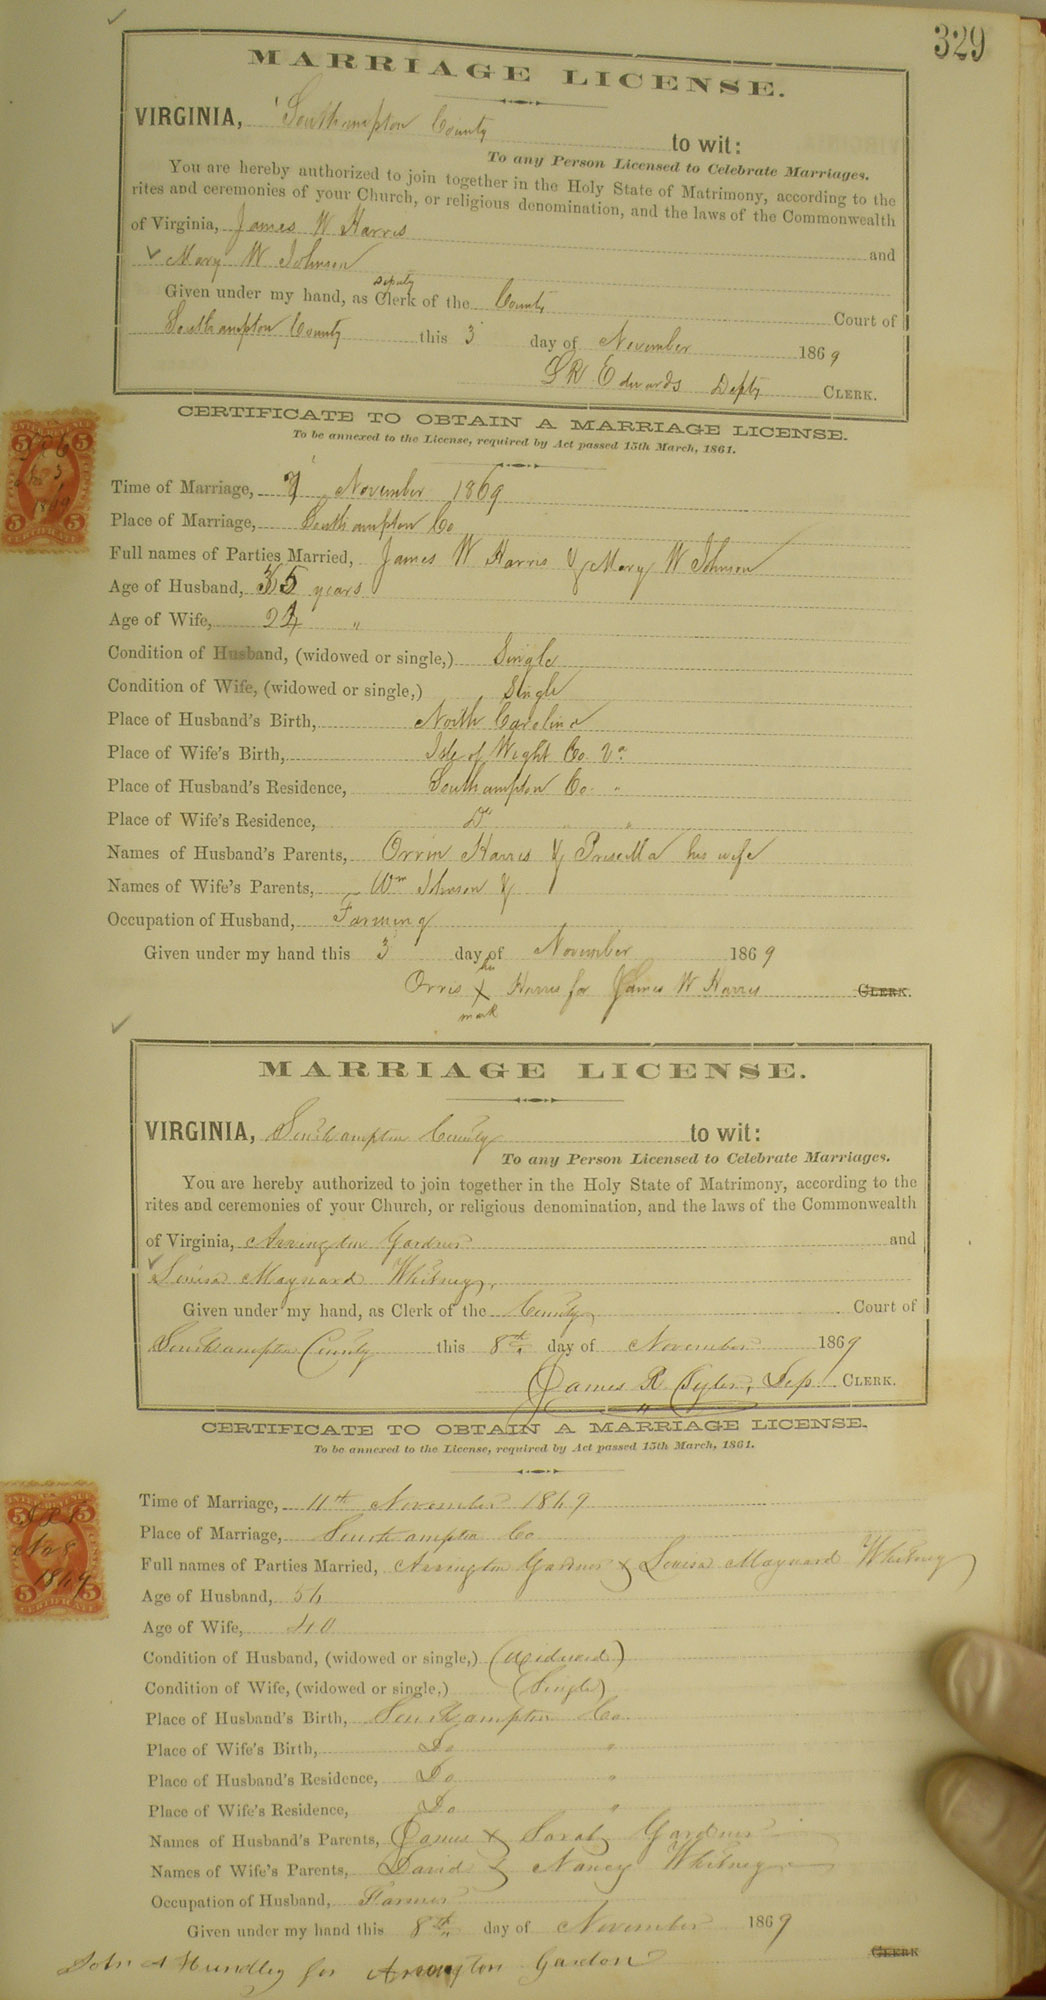 329
MARRIAGE LICENSE.
VIRGINIA, Southampton County to wit:
To any Person Licensed to Celebrate Marriages.
You are hereby authorized to join together in the Holy State of Matrimony, according to the
rites and ceremonies of your Church, or religious denomination, and the laws of the Commonwealth
of Virginia, James W Harris and
Mary W Johnson
Given under my hand, as Deputy Clerk of the County Court of
Southampton County this 3 day of November 1869
L R Edwards Depty CLERK.
CERTIFICATE TO OBTAIN A MARRIAGE LICENSE.
To be annexed to the License, required by Act passed 15th March, 1861.
Time of Marriage, November 1869
Place of Marriage, Southampton Co
Full names of Parties Married, James W Harris & Mary W Johnson
Age of Husband, 35 years
Age of Wife, 24 "
Condition of Husband, (widowed or single,) Single
Condition of Wife, (widowed or single,) Single
Place of Husband's Birth, North Carolina
Place of Wife's Birth, Isle of Wight Co. Va.
Place of Husband's Residence, Southampton Co. "
Place of Wife's Residence, Do " "
Names of Husband's Parents, Orrin Harris & Priscilla his wife
Names of Wife's Parents, Wm Johnson &
Occupation of Husband, Farming
Given under my hand this 3 day of November 1869
Orris his X mark Harris for James W Harris CLERK.
MARRIAGE LICENSE.
VIRGINIA, Southampton County to wit:
To any Person Licensed to Celebrate Marriages.
You are hereby authorized to join together in the Holy State of Matrimony, according to the
rites and ceremonies of your Church, or religious denomination, and the laws of the Commonwealth
of Virginia, Arrington Gardner and
Louisa Maynard Whitney.
Given under my hand, as Clerk of the County Court of
Southampton County this 8th day of November 1869
James R Tyler, Dep CLERK.
CERTIFICATE TO OBTAIN A MARRIAGE LICENSE.
To be annexed to the License, required by Act passed 15th March, 1861.
Time of Marriage, 11th November 1869
Place of Marriage, Southampton Co
Full names of Parties Married, Arrington Gardner & Louisa Maynard Whitney
Age of Husband, 54
Age of Wife, 40
Condition of Husband, (widowed or single,) (Widowed)
Condition of Wife, (widowed or single,) (Single)
Place of Husband's Birth, Southampton Co
Place of Wife's Birth, Do "
Place of Husband's Residence, Do "
Place of Wife's Residence, Do "
Names of Husband's Parents, James & Sarah Gardner
Names of Wife's Parents, David & Nancy Whitney
Occupation of Husband, Farmer
Given under my hand this 8th day of November 1869
CLERK
John A Hundley for Arrington Gardon